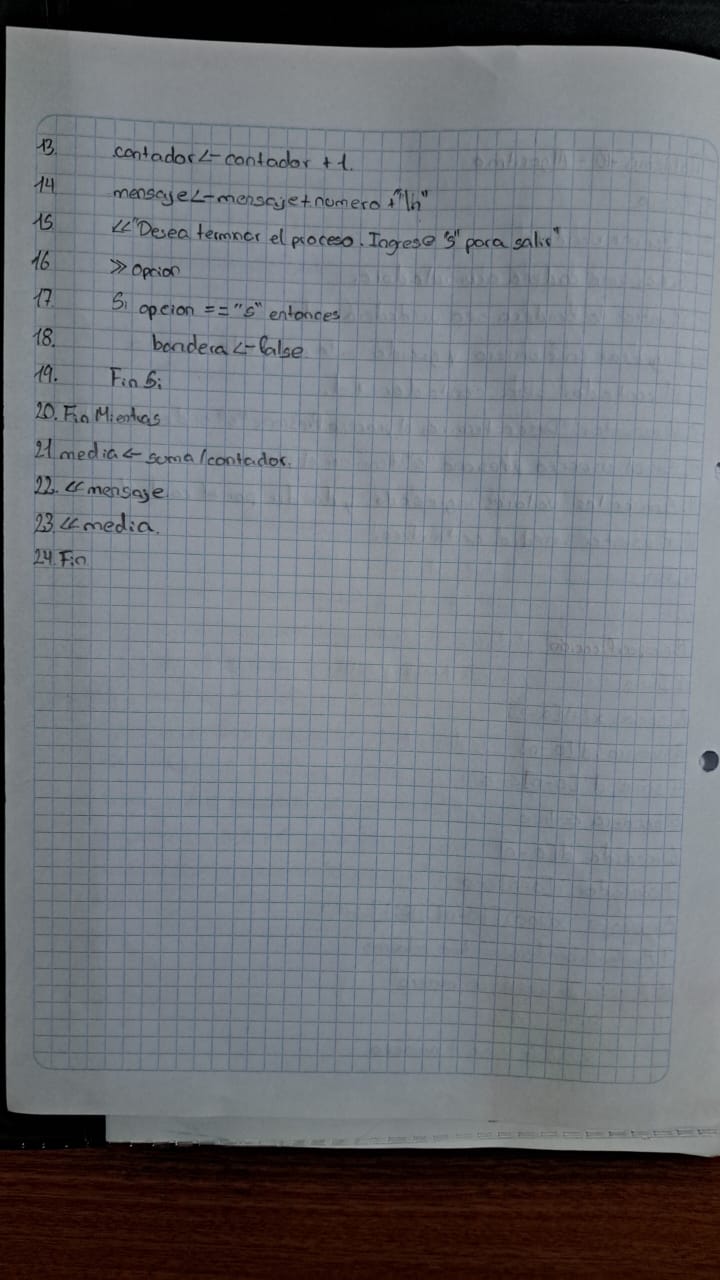 13. contador <- contador + 1.
14 mensaje <- mensaje + numero + "\n"
15 << "Desea terminar el proceso. Ingrese "s" para salir"
16 >> Opcion
17. Si opcion == "s" entonces
18. bandera <- false
19. Fin Si
20. Fin Mientras
21 media <- suma / contador.
22. << mensaje
23. << media.
24. Fin